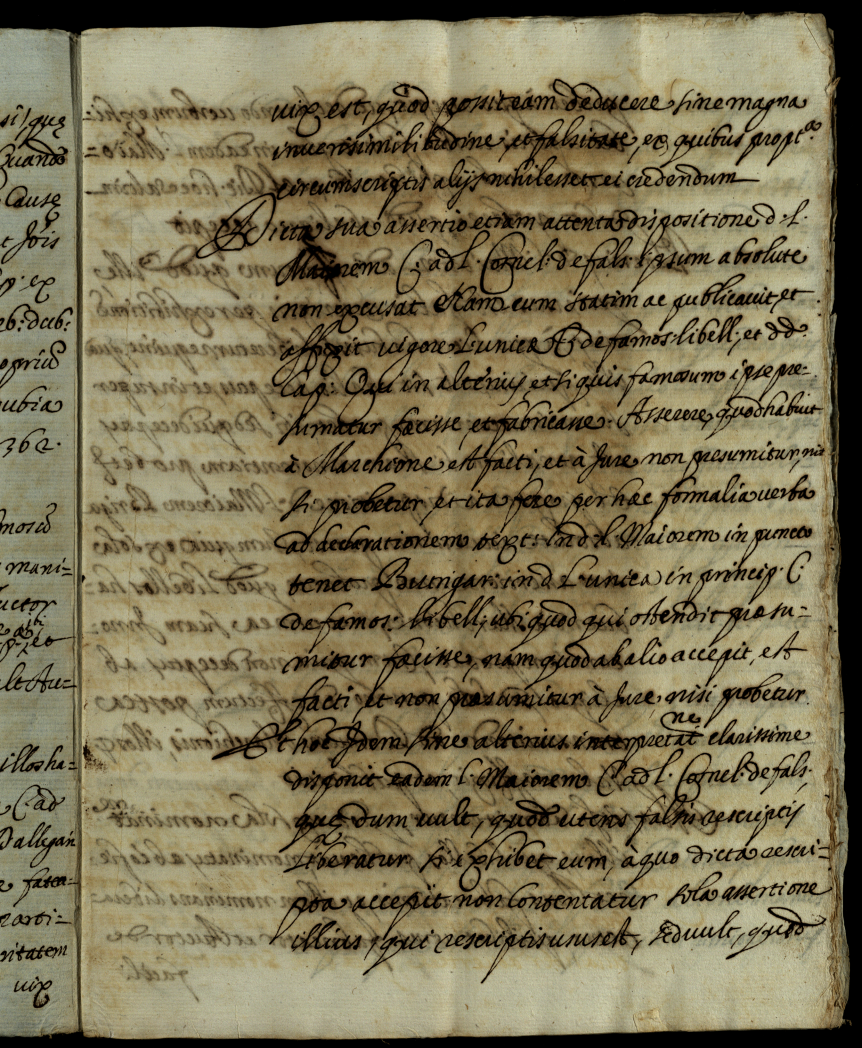 si, quę
Quando
Cause
t Jois
ex
26: dub:
oprio
ubia
362.
mosu
mani=
uctor
alt Au=
illos ha=
C. ad
allegan
parti=
ritatem
uix
uix est, quod possit eam deducere sine magna
inuerisimilitudine, et falsitate, ex quibus propt.ª
circumscriptis alijs nihil esset ei credendum
Dicta sua assertio etiam attenta dispositione d. l.
Maiorem C. ad l. Cornel: de fals: ipsum absolute
non excusat Nam cum statim ac publicauit, et
affixit uigore l. unicæ C. de famos: libell; et dd.
Cap: Qui in alterius, et si quis famosum ipse pre=
sumatur fecisse, et fabricasse. Asserere, quod habuit
à Marchione est facti, et à Jure non presumitur, nisi
si probetur, et ita fere per hæc formalia uerba
ad declarationem text: in d. l. Maiorem in puncto
tenet Butrigar: in d. l. unica in princip. C.
de famos: libell; ubi quod qui ostendit præsu=
mitur fecisse, nam quod ab alio accepit, est
facti et non præsumitur à Jure, nisi probetur.
Et hoc Idem sine alterius interpretatne clarissime
disponit eadem l. Maiorem C. ad l. Cornel: de fals:
quę dum uult, quod utens falsis rescriptis
liberatur si exhibet eum, à quo dicta rescri=
pta accepit non contentatur sola assertione
illius, qui rescriptis usus est, sed uult, quod